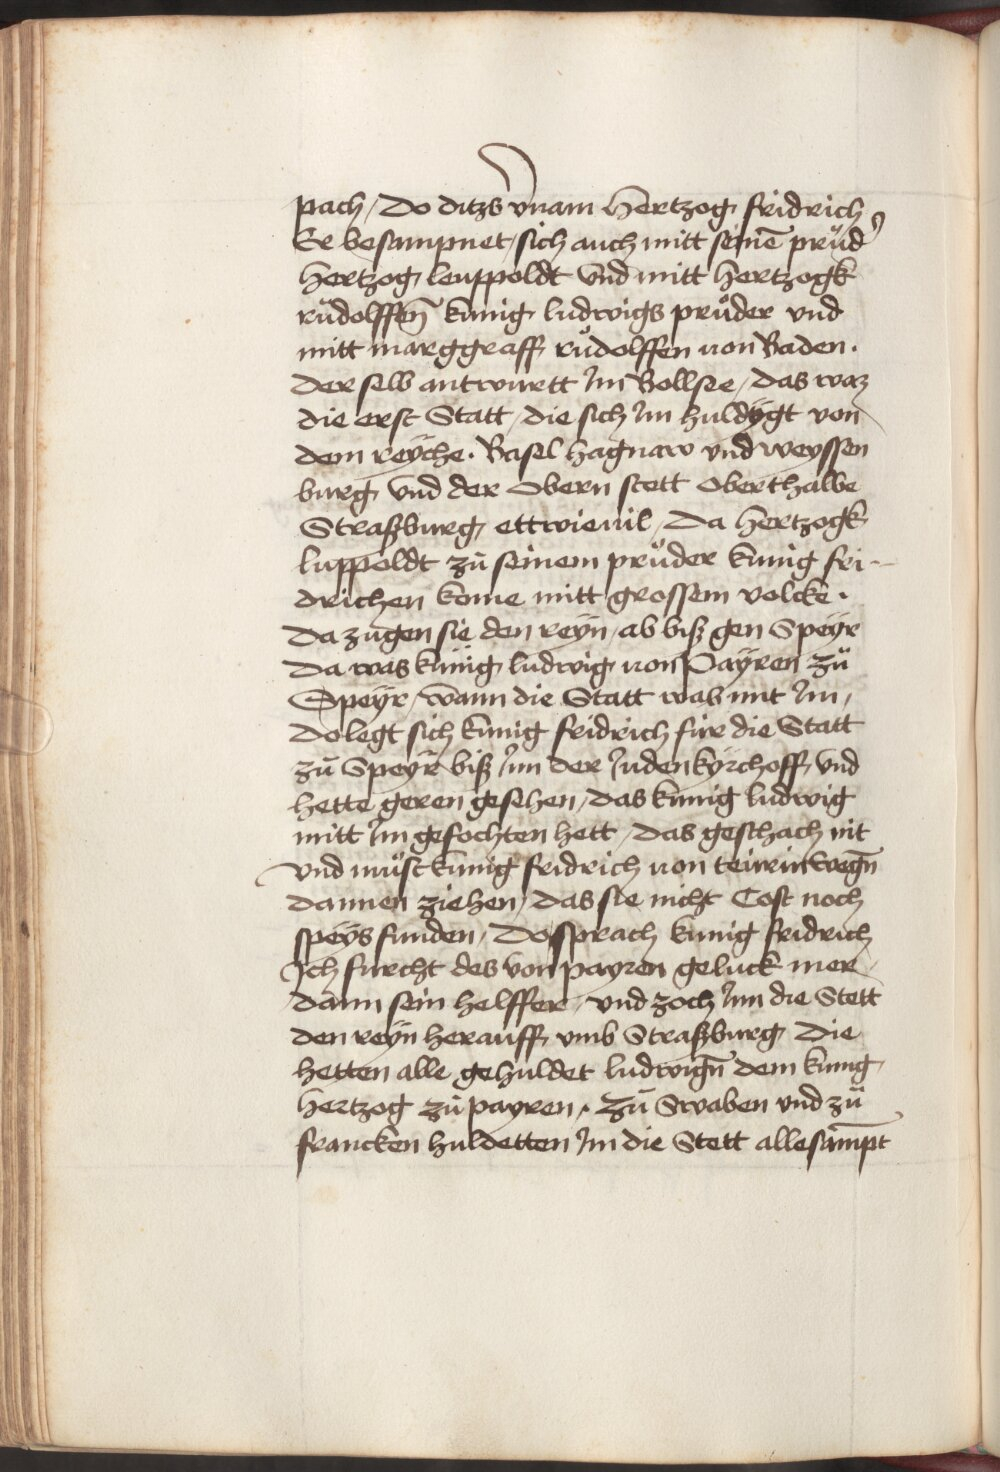 pach / Do ditzs v̈nam Hertzog fridrich
Er besampnet / sich auch mitt seinē průd᷑
Hertzog leuppoldt vnd mitt Hertzogk
růdolffen̄ kunig ludwigs průder vnd
mitt marggraff růdolffen von Baden .
Der selb antwurtt Im Bollsee / das waz
die erst Statt / die sich Im huldÿgt von
dem reÿche . Basel hagnaw vnd weyssen
burg vnd der obern stett oberthalbe
Straßburg ettwieuil / Da Hertzogk
luppoldt zů seinem průder kunig fri-
drichen kome mitt grossem volcke .
Da zugen sie den reÿn / ab biß gen Speÿr
Da was künig ludwig von Paÿren zů
Speÿr / wann die Statt was mit Im /
Do legt sich kunig fridrich für die Statt
zů Speÿr biß Inn der Judenkÿrchoff vnd
hette geren gesehen / das kunig ludwig
mitt Im gefochten hett / das geschach nit
vnd můst kunig fridrich von teurin wegn̄
dannen ziehen / das sie nicht Cost noch
speÿs funden / Do sprach kunig fridrich
Ich furcht des von payren geluck mer
dann sein helffer / vnd zoch Inn die Stett
den reÿn herauff vmb Straßburg die
hetten alle gehuldet ludwign̄ dem kunig
Hertzog zů payren . zů Swaben vnd zů
francken huldetten Im die Stett allesampt